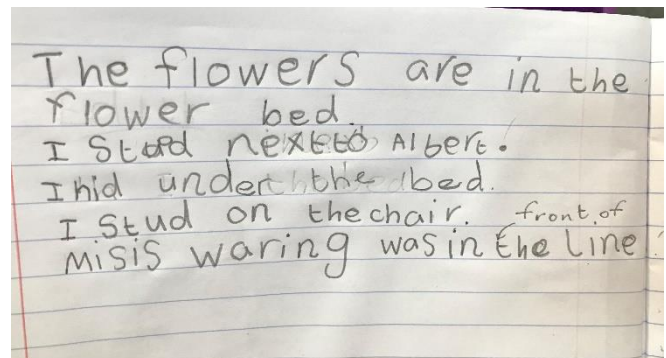 The flowers are in the
flower bed.
I stood next to Albert.
I hid under the bed.
I stud on the chair. front of
misis waring was in the line